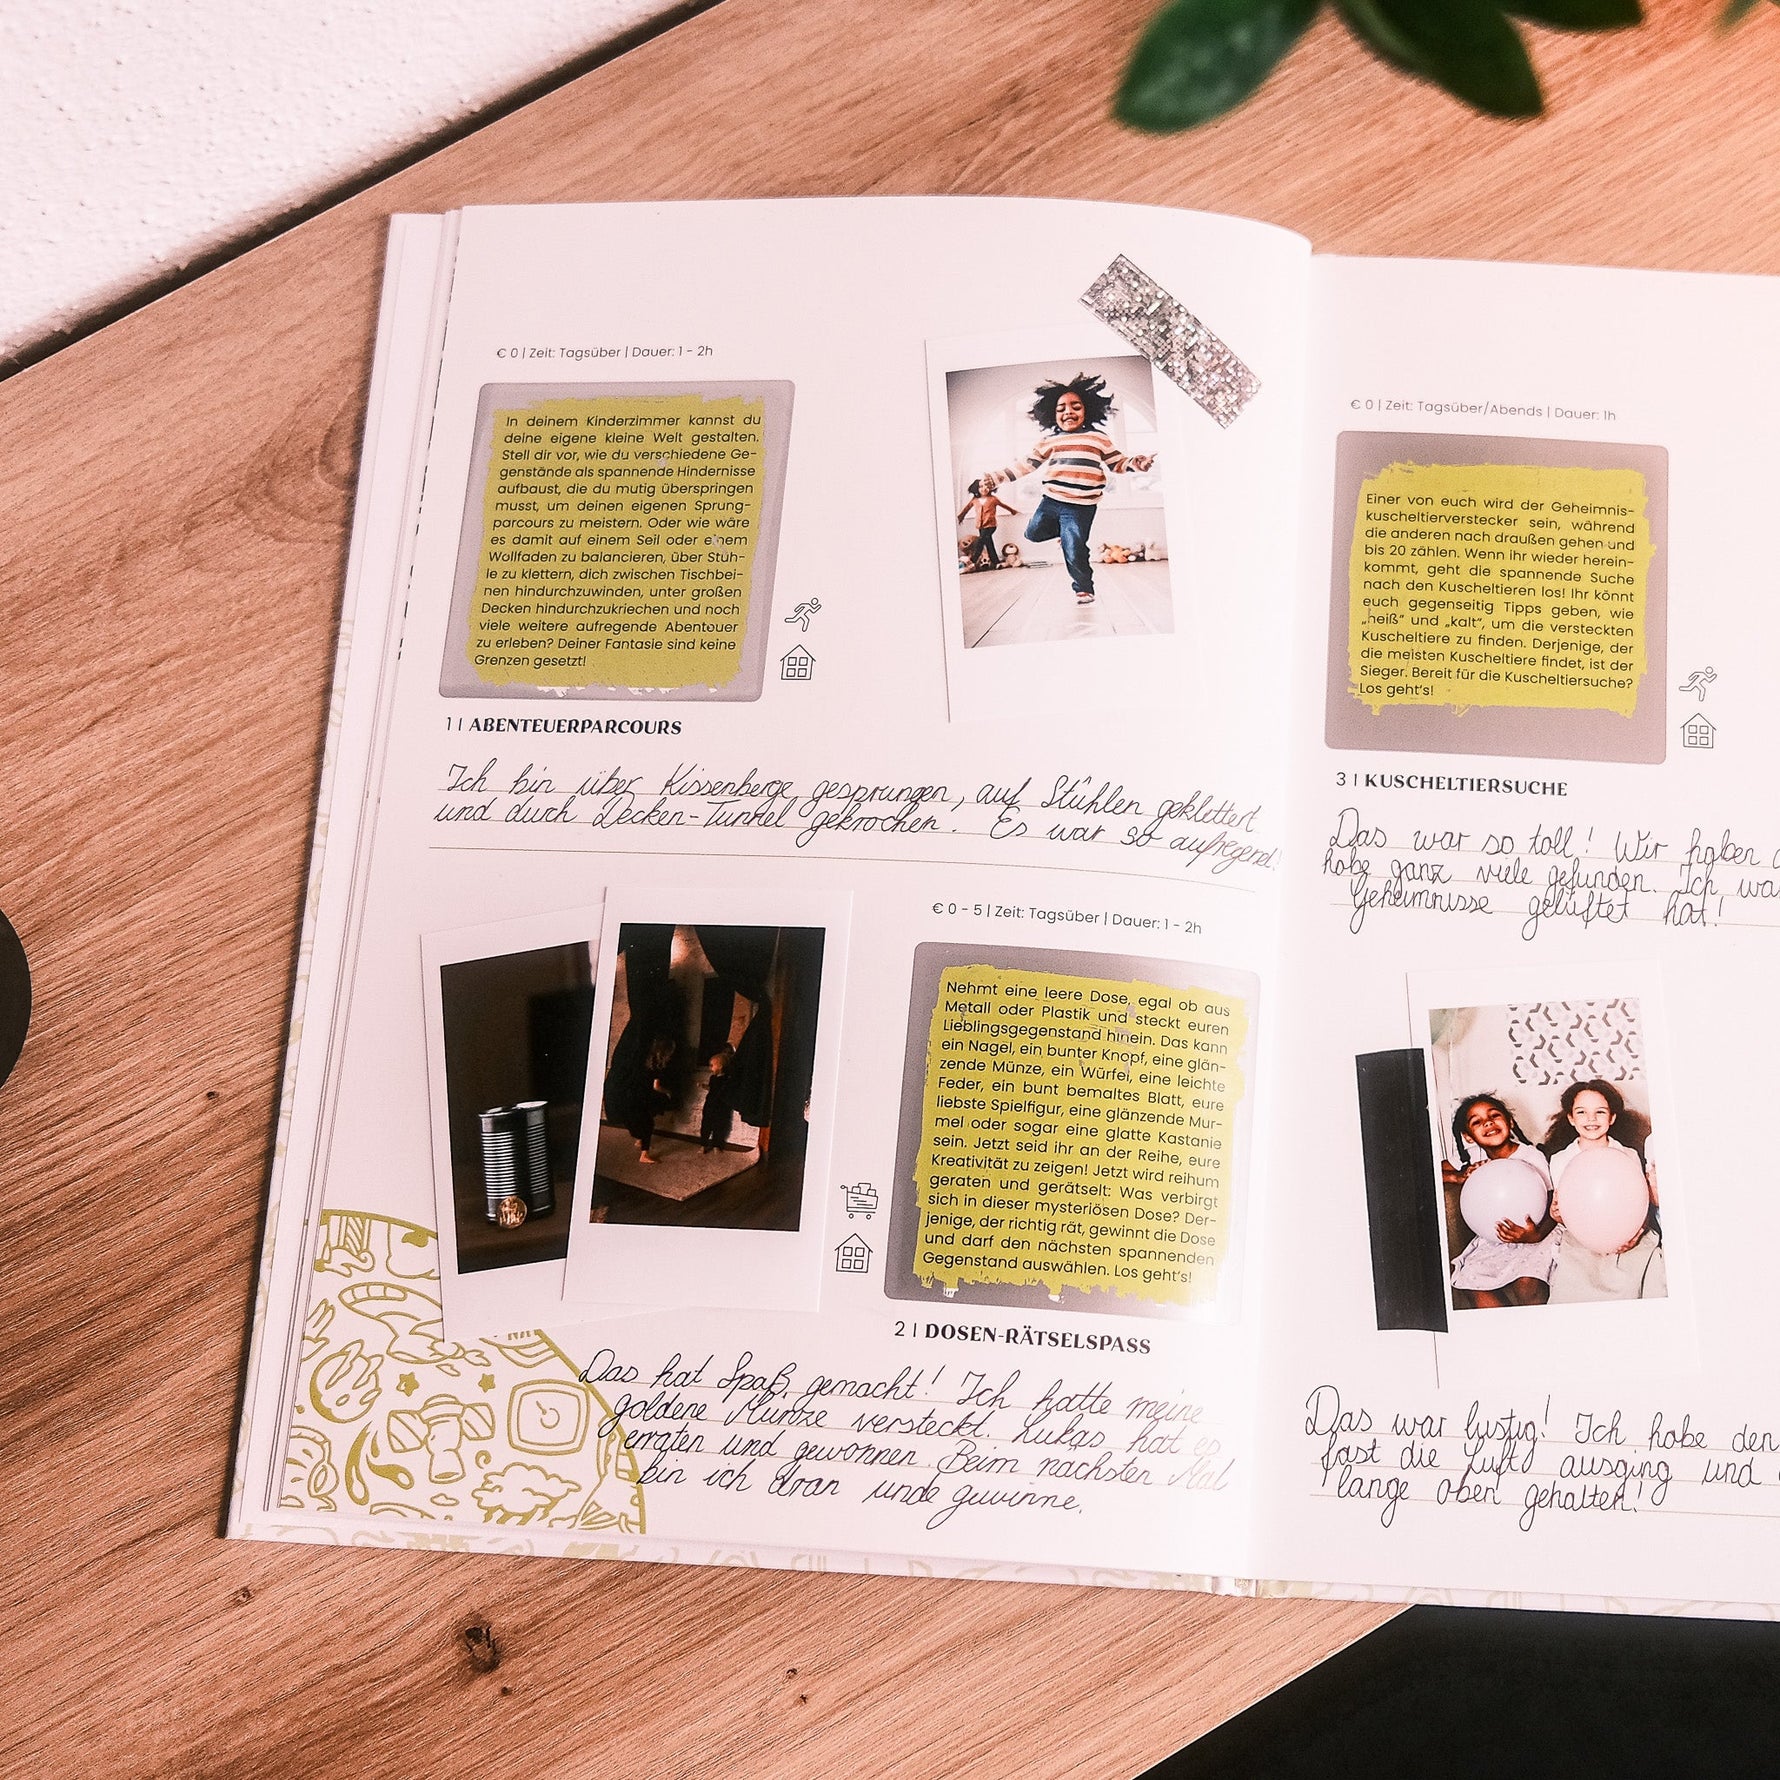 € 0 | Zeit: Tagsüber | Dauer: 1 - 2h
In deinem Kinderzimmer kannst du
deine eigene kleine Welt gestalten.
Stell dir vor, wie du verschiedene Ge-
genstände als spannende Hindernisse
aufbaust, die du mutig überspringen
musst, um deinen eigenen Sprung-
parcours zu meistern. Oder wie wäre
es damit auf einem Seil oder einem
Wollfaden zu balancieren, über Stüh-
le zu klettern, dich zwischen Tischbei-
nen hindurchzuwinden, unter großen
Decken hindurchzukriechen und noch
viele weitere aufregende Abenteuer
zu erleben? Deiner Fantasie sind keine
Grenzen gesetzt!
1 | ABENTEUERPARCOURS
Ich bin über Kissenberge gesprungen, auf Stühlen geklettert
und durch Decken-Tunnel gekrochen. Es war so aufregend!
€ 0 - 5 | Zeit: Tagsüber | Dauer: 1 - 2h
Nehmt eine leere Dose, egal ob aus
Metall oder Plastik und steckt euren
Lieblingsgegenstand hinein. Das kann
ein Nagel, ein bunter Knopf, eine glän-
zende Münze, ein Würfel, eine leichte
Feder, ein bunt bemaltes Blatt, eure
liebste Spielfigur, eine glänzende Mur-
mel oder sogar eine glatte Kastanie
sein. Jetzt seid ihr an der Reihe, eure
Kreativität zu zeigen! Jetzt wird reihum
geraten und gerätselt: Was verbirgt
sich in dieser mysteriösen Dose? Der-
jenige, der richtig rät, gewinnt die Dose
und darf den nächsten spannenden
Gegenstand auswählen. Los geht's!
2 | DOSEN-RÄTSELSPASS
Das hat Spaß gemacht! Ich hatte meine
goldene Münze versteckt. Lukas hat es
erraten und gewonnen. Beim nächsten Mal
bin ich dran unde gewinne.
€ 0 | Zeit: Tagsüber/Abends | Dauer: 1h
Einer von euch wird der Geheimnis-
kuscheltierverstecker sein, während
die anderen nach draußen gehen und
bis 20 zählen. Wenn ihr wieder herein-
kommt, geht die spannende Suche
nach den Kuscheltieren los! Ihr könnt
euch gegenseitig Tipps geben, wie
„heiß“ und „kalt“, um die versteckten
Kuscheltiere zu finden. Derjenige, der
die meisten Kuscheltiere findet, ist der
Sieger. Bereit für die Kuscheltiersuche?
Los geht's!
3 | KUSCHELTIERSUCHE
Das war so toll! Wir haben
habe ganz viele gefunden. Ich
Geheimnisse gelüftet hat!
Das war lustig! Ich habe den
fast die Luft ausging und
lange oben gehalten!